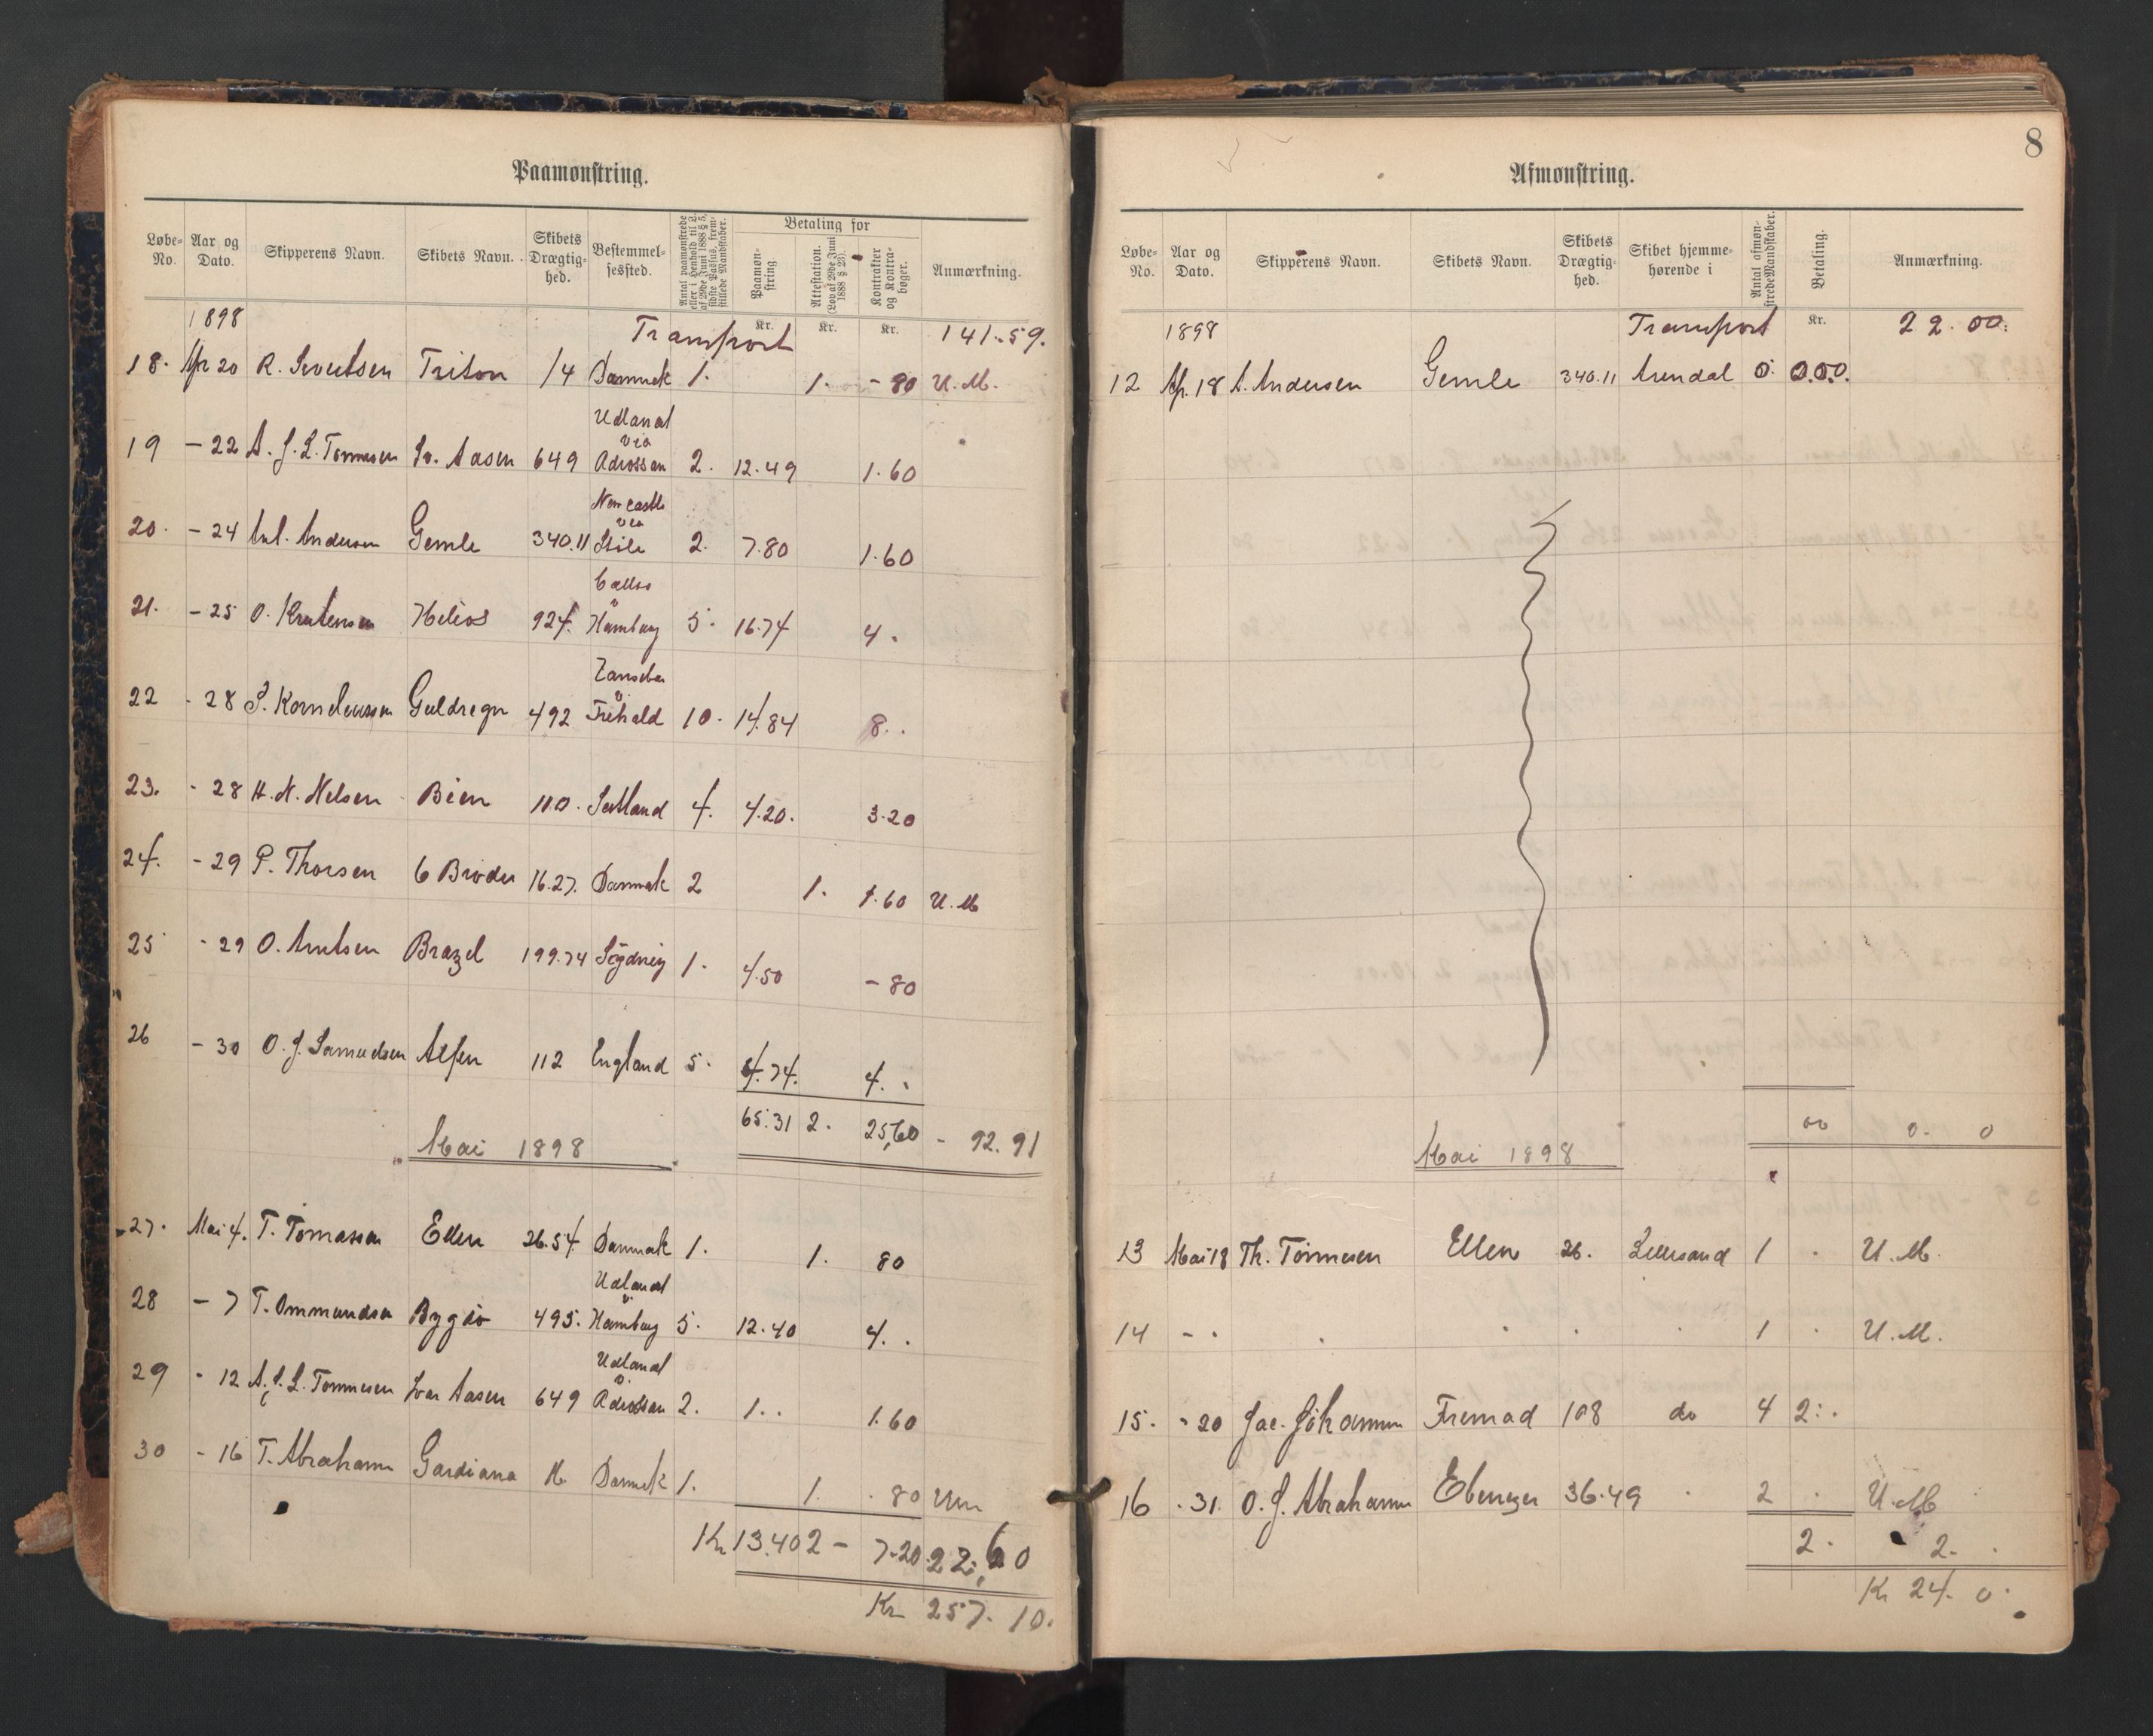 Paamonstring.
Løbe-No. Aar og Dato. Skipperens Navn. Skibets Navn. Skibets Drægtighed. Bestemmelsessted. Antal paamønstrede eller i Henhold til L. af 29de Juni 1888 § 5, sidste Passus, fremstillede Mandskaber. Betaling for Paamønstring. Attestation. (Lov af 29de Juni 1888 § 23). Kontrakter og Kontrabøger. Anmærkning.
Kr. Kr. Kr.
1898 Transport 141.59.
18. Apr 20 R. Sivertsen Triton 14 Danmek 1. 1. - 80 U.M.
19 - 22 A. J. L. Tønnesen Iv. Aasen 649 Udland via Adrossan 2. 12.49 1.60
20. - 24 Ant. Andersen Gemle 340.11 Newcastle via 2. 7.80 1.60
21. - 25 O. Helios 924. Callao Hamburg 5. 16.74 4.
22 - 28 S. Korneliussen Guldregn 492 10. 14.84 8..
23. - 28 H. N. Nelsen Bien 110. 4. 4.20. 3.20
24. - 29 P. Thorsen 6 Brødre 16.27. Danmek 2 1. 1.60 U.M
25 - 29 O. Arntsen Brazel 199.74 1. 4.50 - 80
26 - 30 O. J. Samuelsen Alfen 112 England 5. 4.74. 4..
65.31 2. 25,60 - 92.91
Mai 1898
27. Mai 4. T. Tømassen Ellen 26.54 Danmek 1. 1. 80
28 - 7 T. Ommundsen Bygdø 495. Udland v. Hamburg 5. 12.40 4..
29 - 12 A. J. L. Tønnesen Ivar Aasen 649 Udland v. Adrossan 2. 1.. 1.60
30 - 16 T. Abrahams Gardiana 16 Danmek 1. 1. 80 Um
Kr 13.40 2 - 7.20 22,60
Kr 257.10.
8
Afmonstring.
Løbe-No. Aar og Dato. Skipperens Navn. Skibets Navn. Skibets Drægtighed. Skibet hjemmehørende i Antal afmønstrede Mandskaber. Betaling. Anmærkning.
Kr.
1898 Transport 22.00.
12 Ap. 18 A. Andersen Gemle 340.11 Arendal 0. 0.00.
00 0. 0
Mai 1898
13 Mai 18 Th. Tönnesen Ellen 26. Lillesand 1 . U.M.
14 - . . . . . 1 . U.M.
15. - 20 Jac. Jöhannsen Fremad 108 do 4 2..
16 . 31. O. J. Abrahamsen Ebenezer 36.49 . 2 . U.M
2. 2. .
Kr 24. 0.